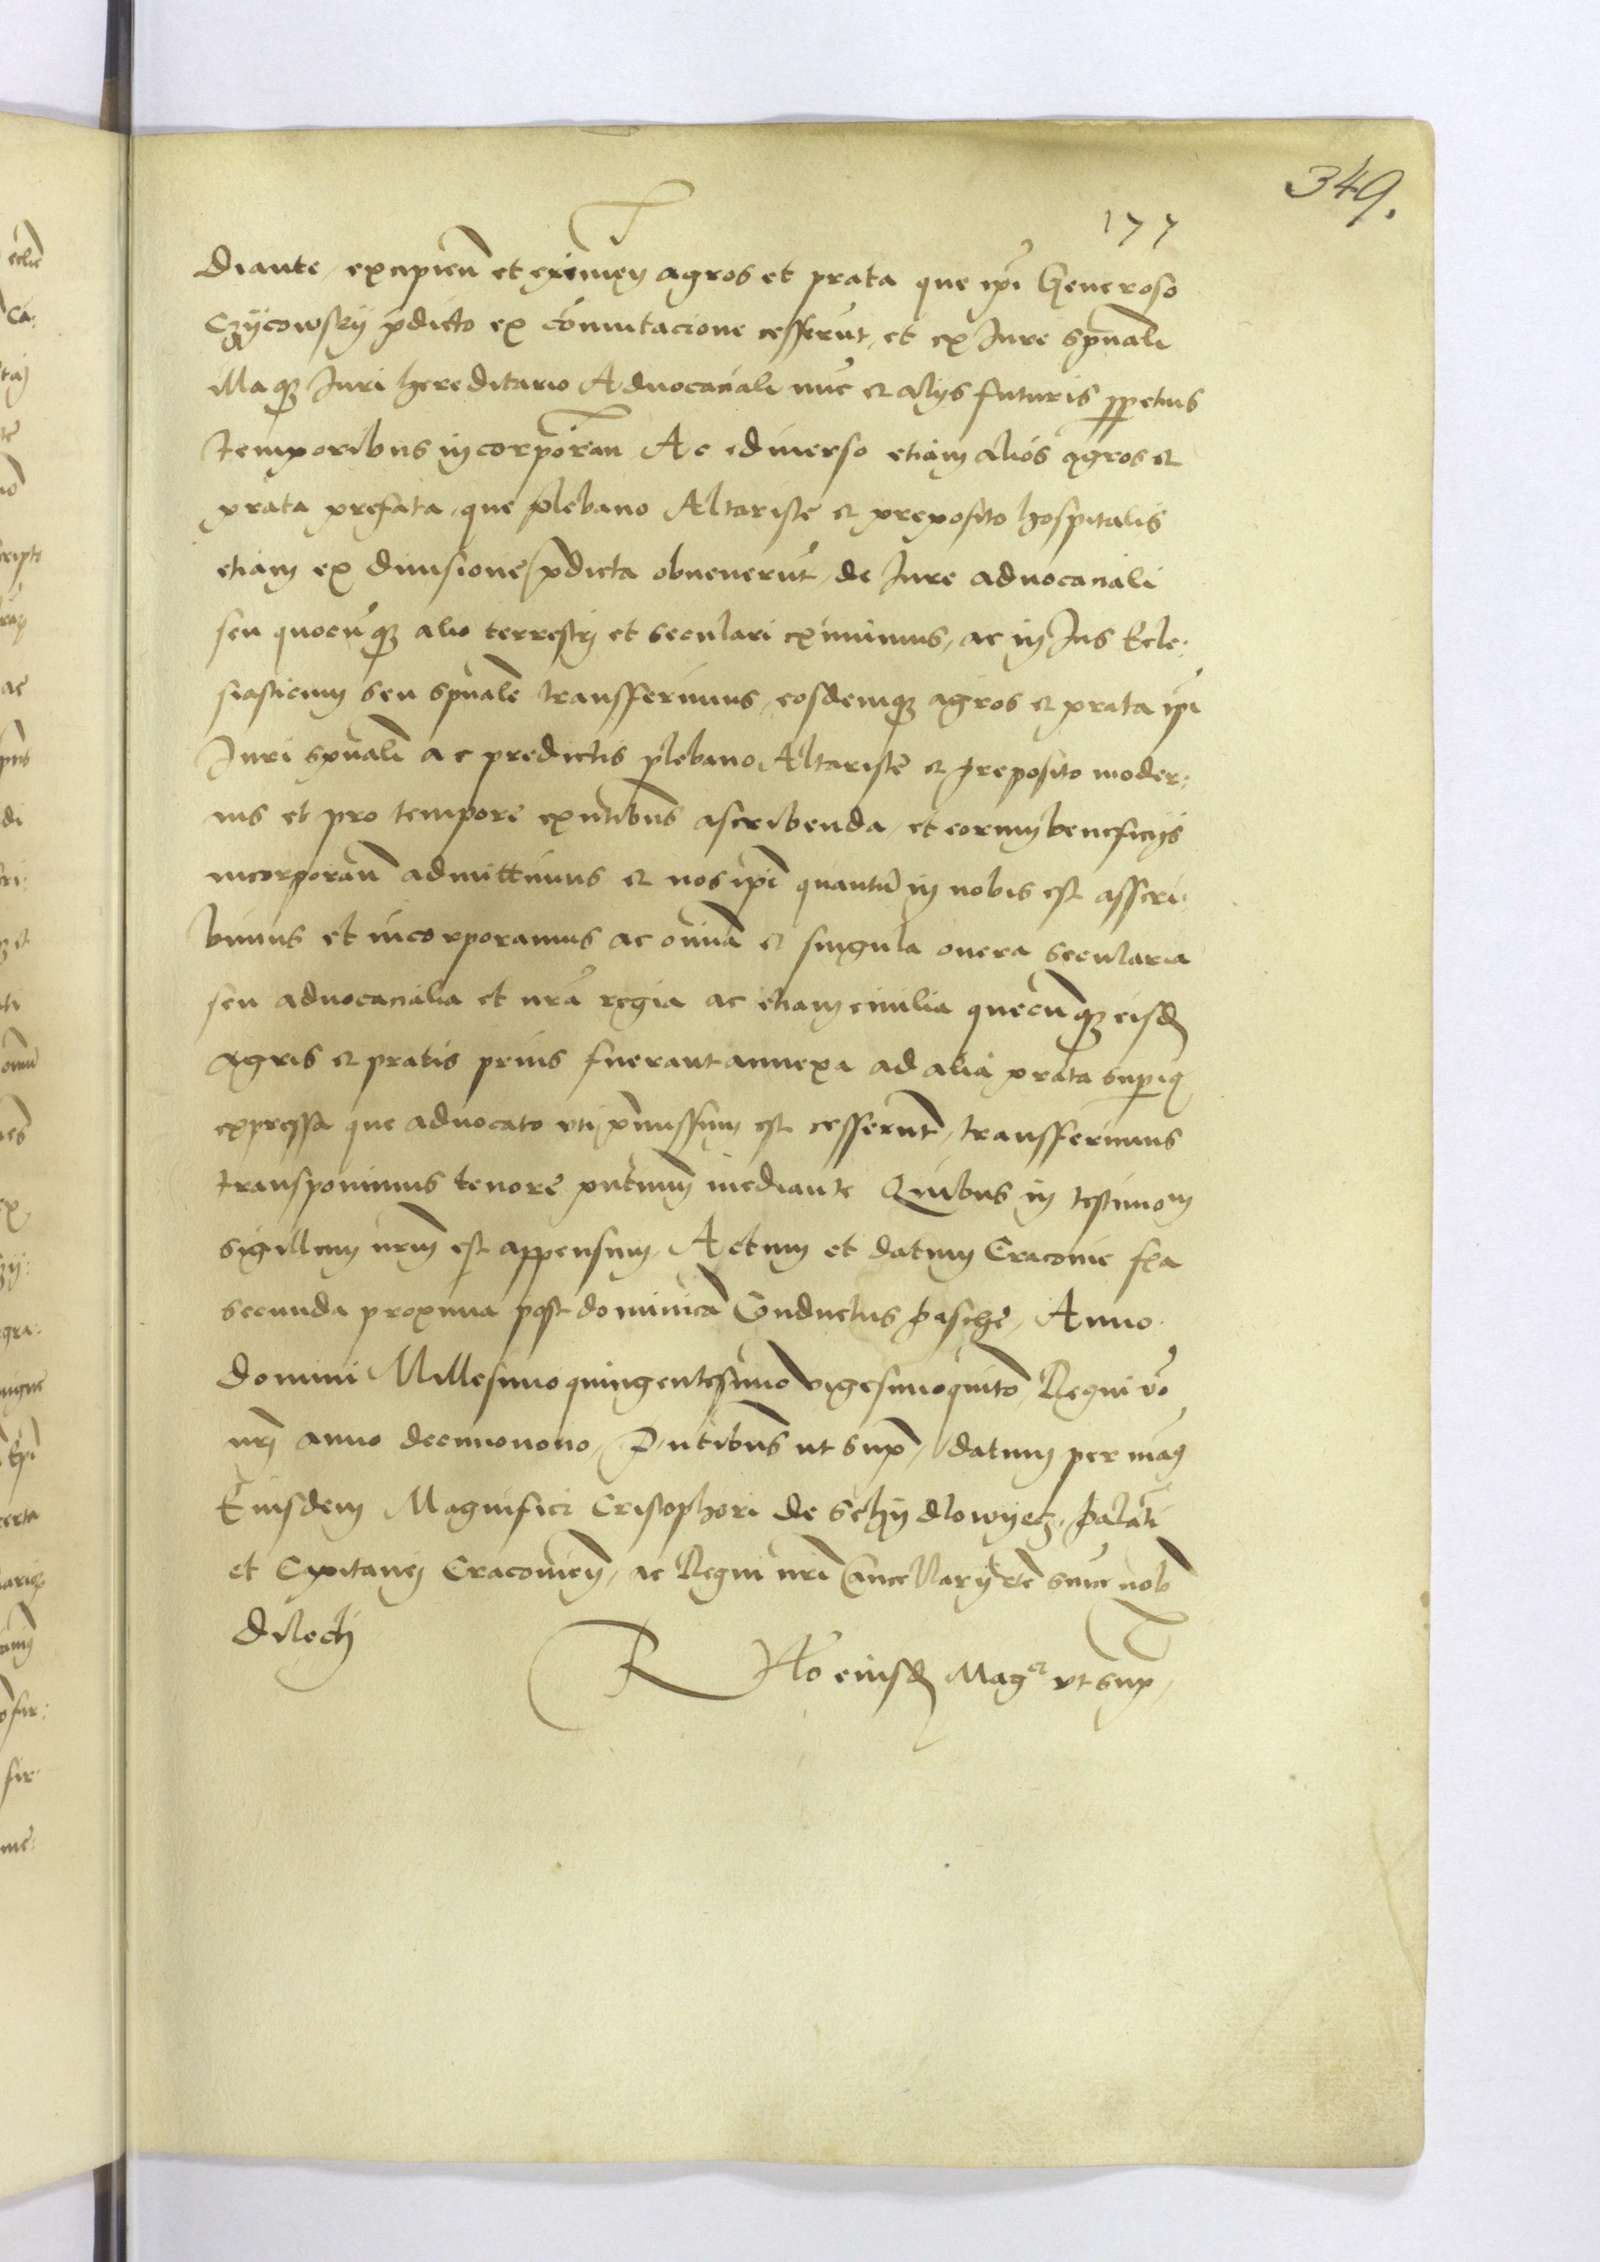 349.
177
diante, excipien̄ et eximen̄ agros et prata que ip̄i Generoso
Czÿcowskÿ p̄dicto ex cōmutacione cesserūt, et ex Jure sp̄uali
illaq3 Juri hereditario Aduocaciali nūc et alÿs futuris ꝑpetuis
temporibus incorporan̄ Ac ediuerso etiam alios agros et
prata prefata, que plebano Altariste et preposito hospitalis
etiam ex diuisione p̄dicta obuenerūt, de Jure aduocaciali
seu quocūq3 alio terrestri et seculari eximimus, ac in Jus Ecle:
siasticum seu sp̄uale transferimus, eosdemq3 agros et prata ip̄i
Juri sp̄uali ac predictis plebano Altariste et preposito moder:
nis et pro tempore exn̄tibus ascribenda, et eorum beneficÿs
incorporan̄ admittimus et nos ip̄i quantū in nobis est asscri:
bimus et incorporamus ac om̄ia et singula onera secularia
seu aduocacialia et nr̄a regia ac etiam ciuilia quecūq3 eisd
agris et pratis prius fuerant annexa ad alia prata superiꝰ
expressa que aduocato uti p̄missum est cesserunt, transferimus
transponimus tenore pn̄tium mediante Quibus in testimom
sigillum nr̄m est appensum, Actum et datum Cracouie fr̄a
secunda proxima post dominicā Conductus pasche, Anno
domini Millesimo quingentesimo vigesimoquīto, Regni vo
nr̄i anno decimonono, P̄ntibus ut sup, datum per man̄
Eiusdem Magnifici Cristophori de Schÿdlowÿecz, palati
et Capitanei Cracouien̄, ac Regni nr̄i Cancellarÿ etc̄ sincē nob
dilecti
R̄ Ho eiusd Magci vt sup,